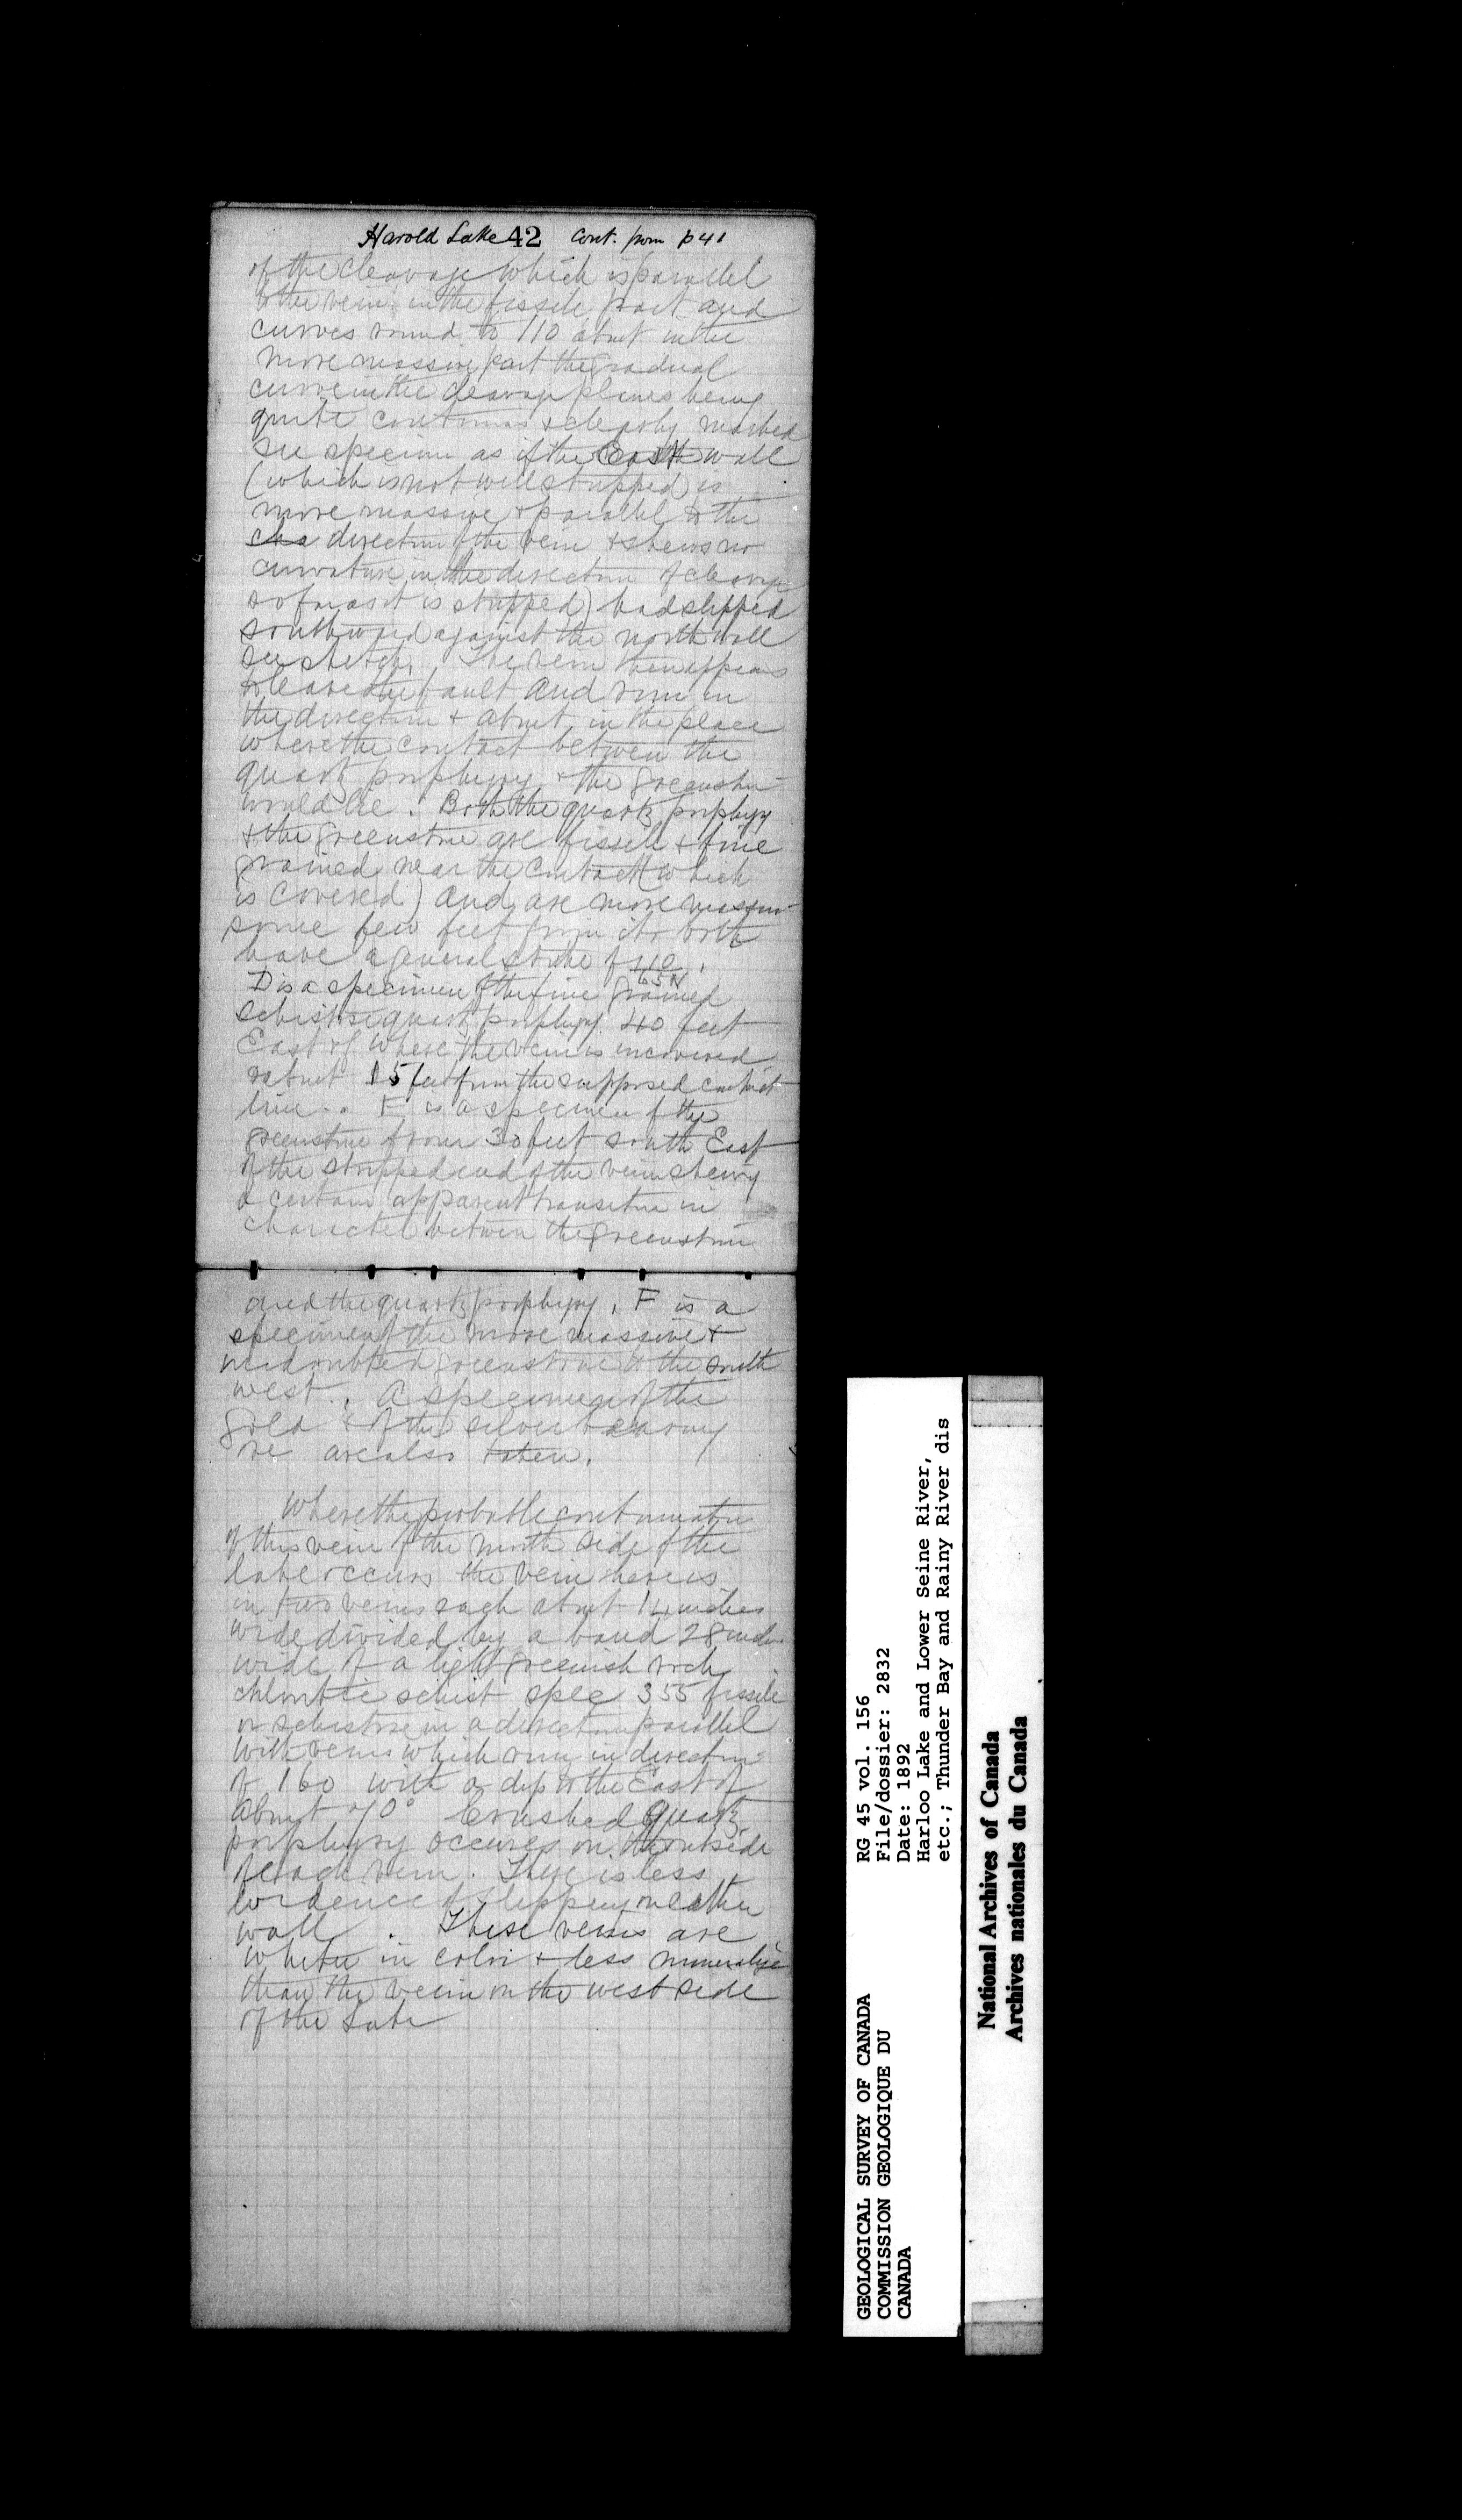 Harold Lake 42 Cont. from p 41
of the cleavage which is parallel
to the vein in the fissile part and
curves round to 110 about in the
more massive part the gradual
curve in the cleavage planes being
quite continuous & clearly marked
see specimen as if the East wall
(which is not well stripped is
more massive & parallel to the
direction of the vein & shews no
curvature in the direction of cleavage
so far as it is stripped) had slipped
southward against the north wall
see sketch. The vein then appears
to leave the fault and run in
the direction & about in the place
where the contact between the
quartz porphyry & the greenstone
would lie. Both the quartz porphyry
& the greenstone are fissile & fine
grained near the contact (which
is covered) and are more massive
some few feet from it & both
have a general strike of 110/65N.
D is a specimen of the fine grained
schistose quartz porphyry 40 feet
East of where the vein is uncovered
& about 15 feet from the supposed contact
line. E is a specimen of the
greenstone from 30 feet south East
of the stripped end of the vein shewing
a certain apparent transition in
character between the greenstone
and the quartz porphyry. F is a
specimen of the more massive &
undoubted greenstone to the south
west. A specimen of the
gold & of the silver bearing
ore are also taken.
Where the probable continuation
of this vein of the north side of the
lake occurs the vein here is
in two veins each about 14 inches
wide divided by a band 28 inches
wide of a light greenish rock
chloritic schist spec 355 fissile
or schistose in a direction parallel
with veins which run in direction
of 160 with a dip to the East of
about 70° Crushed quartz
porphyry occurs on the outside
of each vein. There is less
evidence of slipping on either
wall. These veins are
whiter in color & less mineralized
than the vein on the west side
of the Lake
GEOLOGICAL SURVEY OF CANADA
COMMISSION GEOLOGIQUE DU
CANADA
RG 45 vol. 156
File/dossier: 2832
Date: 1892
Harloo Lake and Lower Seine River,
etc.; Thunder Bay and Rainy River dis
National Archives of Canada
Archives nationales du Canada